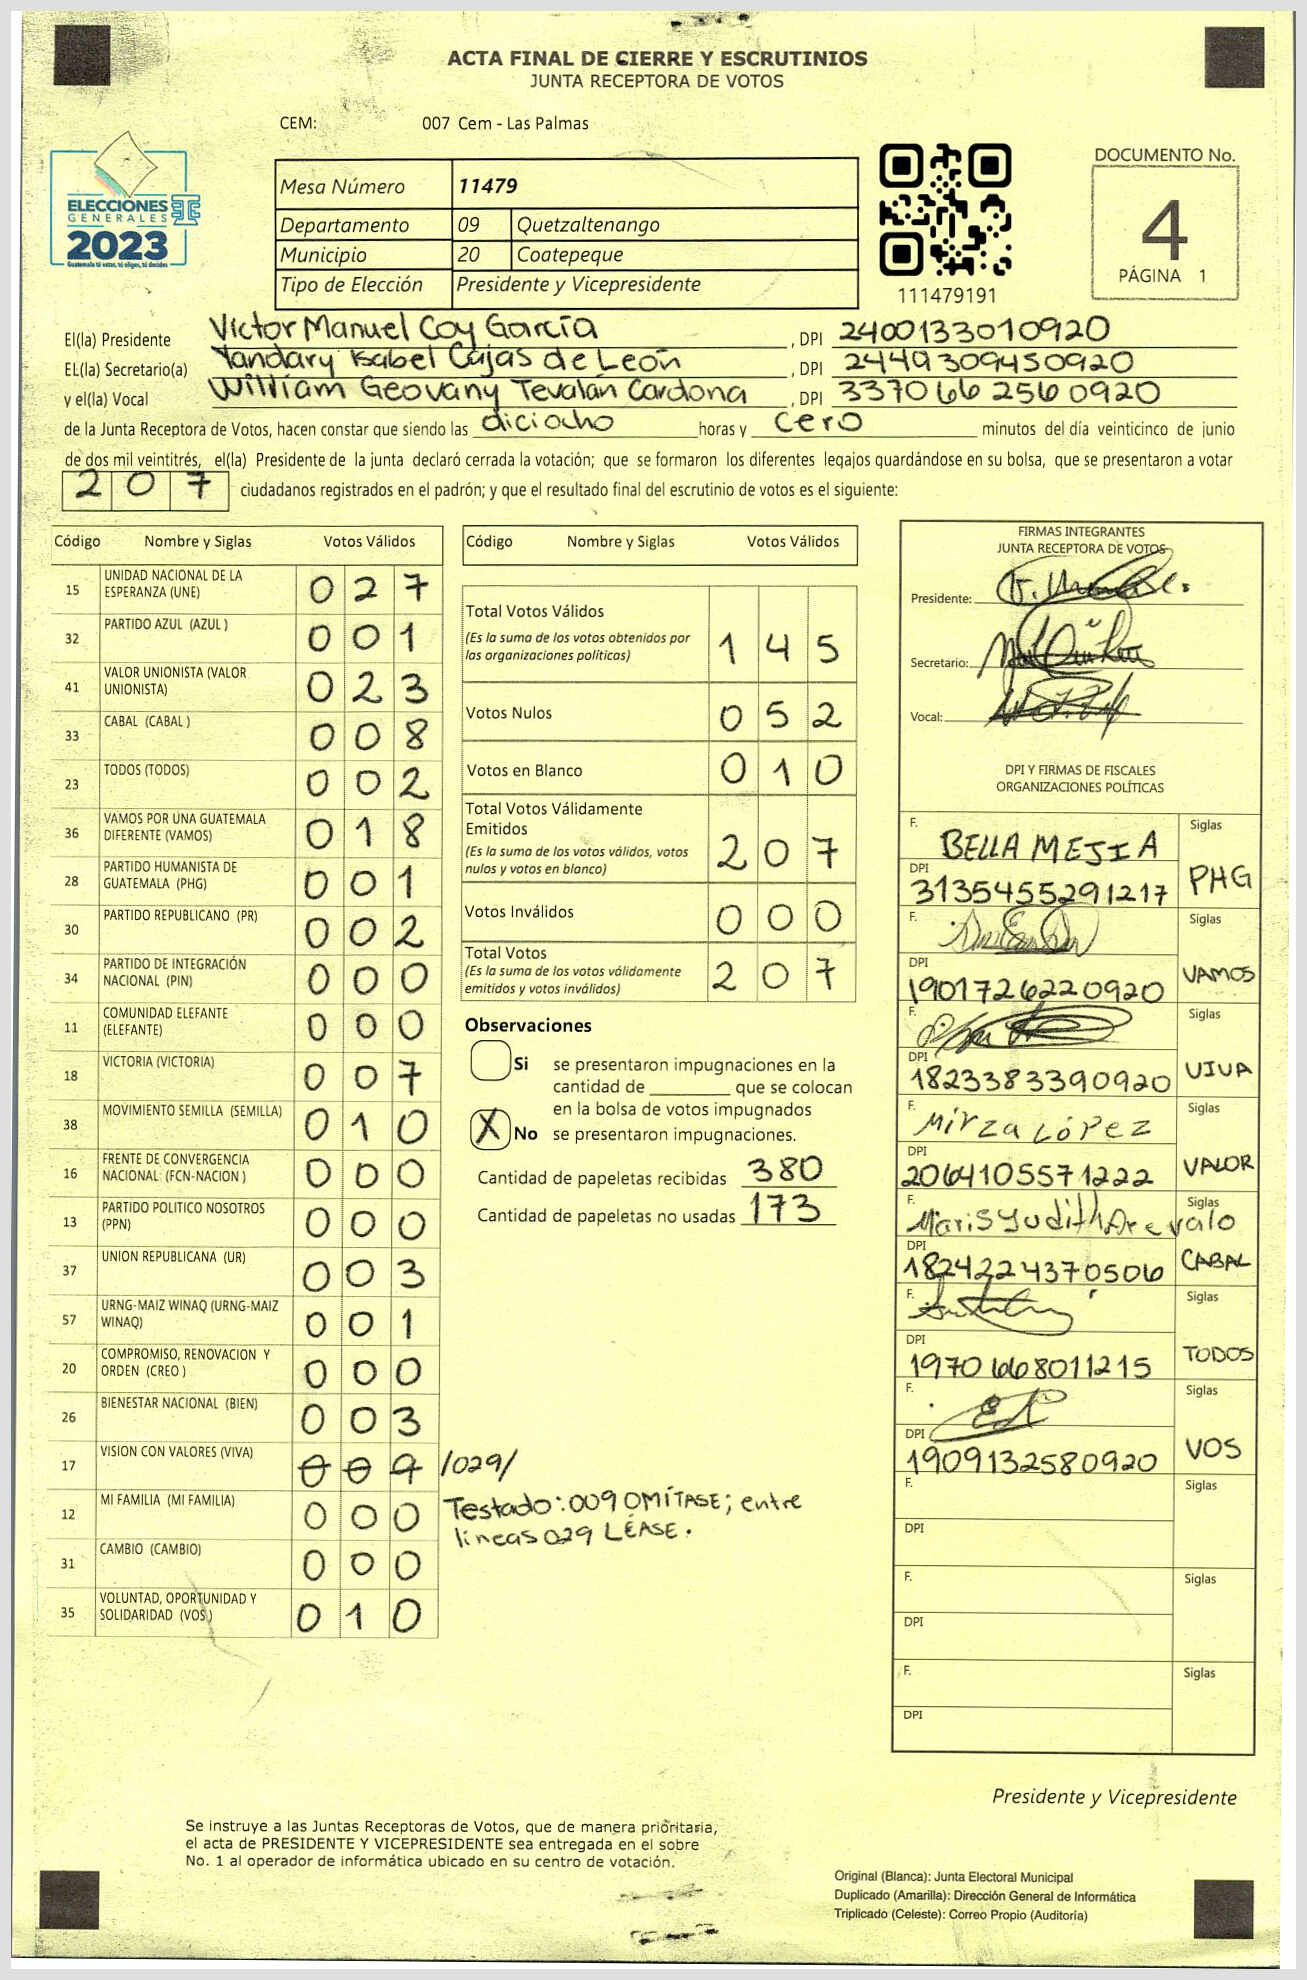 ACTA FINAL DE CIERRE Y ESCRUTINIOS
JUNTA RECEPTORA DE VOTOS
CEM: 007 Cem - Las Palmas
ELECCIONES
GENERALES
2023
Guatemala tú votas, tú eliges, tú decides
Mesa Número 11479
Departamento 09 Quetzaltenango
Municipio 20 Coatepeque
Tipo de Elección Presidente y Vicepresidente
111479191
DOCUMENTO No.
4
PÁGINA 1
El(la) Presidente Victor Manuel Coy García , DPI 2400133010920
EL(la) Secretario(a) Yandary Isabel Cajas de León , DPI 2449309450920
y el(la) Vocal William Geovany Tevalán Cardona , DPI 3370662560920
de la Junta Receptora de Votos, hacen constar que siendo las diciocho horas y cero minutos del día veinticinco de junio
de dos mil veintitrés, el(la) Presidente de la junta declaró cerrada la votación; que se formaron los diferentes legajos guardándose en su bolsa, que se presentaron a votar
207 ciudadanos registrados en el padrón; y que el resultado final del escrutinio de votos es el siguiente:
Código Nombre y Siglas Votos Válidos
15 UNIDAD NACIONAL DE LA ESPERANZA (UNE) 027
32 PARTIDO AZUL (AZUL ) 001
41 VALOR UNIONISTA (VALOR UNIONISTA) 023
33 CABAL (CABAL ) 008
23 TODOS (TODOS) 002
36 VAMOS POR UNA GUATEMALA DIFERENTE (VAMOS) 018
28 PARTIDO HUMANISTA DE GUATEMALA (PHG) 001
30 PARTIDO REPUBLICANO (PR) 002
34 PARTIDO DE INTEGRACIÓN NACIONAL (PIN) 000
11 COMUNIDAD ELEFANTE (ELEFANTE) 000
18 VICTORIA (VICTORIA) 007
38 MOVIMIENTO SEMILLA (SEMILLA) 010
16 FRENTE DE CONVERGENCIA NACIONAL (FCN-NACION ) 000
13 PARTIDO POLITICO NOSOTROS (PPN) 000
37 UNION REPUBLICANA (UR) 003
57 URNG-MAIZ WINAQ (URNG-MAIZ WINAQ) 001
20 COMPROMISO, RENOVACION Y ORDEN (CREO ) 000
26 BIENESTAR NACIONAL (BIEN) 003
17 VISION CON VALORES (VIVA) 009 /029/
12 MI FAMILIA (MI FAMILIA) 000
31 CAMBIO (CAMBIO) 000
35 VOLUNTAD, OPORTUNIDAD Y SOLIDARIDAD (VOS) 010
Testado: 009 OMÍTASE; entre
lineas 029 LÉASE.
Código Nombre y Siglas Votos Válidos
Total Votos Válidos 145
(Es la suma de los votos obtenidos por
las organizaciones políticas)
Votos Nulos 052
Votos en Blanco 010
Total Votos Válidamente
Emitidos 207
(Es la suma de los votos válidos, votos
nulos y votos en blanco)
Votos Inválidos 000
Total Votos 207
(Es la suma de los votos válidamente
emitidos y votos inválidos)
Observaciones
Si se presentaron impugnaciones en la
cantidad de ________ que se colocan
en la bolsa de votos impugnados
X No se presentaron impugnaciones.
Cantidad de papeletas recibidas 380
Cantidad de papeletas no usadas 173
FIRMAS INTEGRANTES
JUNTA RECEPTORA DE VOTOS
Presidente:
Secretario:
Vocal:
DPI Y FIRMAS DE FISCALES
ORGANIZACIONES POLÍTICAS
F. BELLA MEJIA Siglas
DPI 3135455291217 PHG
F. Siglas
DPI 1901726220920 VAMOS
F. Siglas
DPI 1823383390920 VIVA
F. Mirza López Siglas
DPI 2064105571222 VALOR
F. Maris Yudith Arevalo Siglas
DPI 1824224370506 CABAL
F. Siglas
DPI 1970668011215 TODOS
F. Siglas
DPI 1909132580920 VOS
F. Siglas
DPI
F. Siglas
DPI
F. Siglas
DPI
Presidente y Vicepresidente
Se instruye a las Juntas Receptoras de Votos, que de manera prioritaria,
el acta de PRESIDENTE Y VICEPRESIDENTE sea entregada en el sobre
No. 1 al operador de informática ubicado en su centro de votación.
Original (Blanca): Junta Electoral Municipal
Duplicado (Amarilla): Dirección General de Informática
Triplicado (Celeste): Correo Propio (Auditoría)